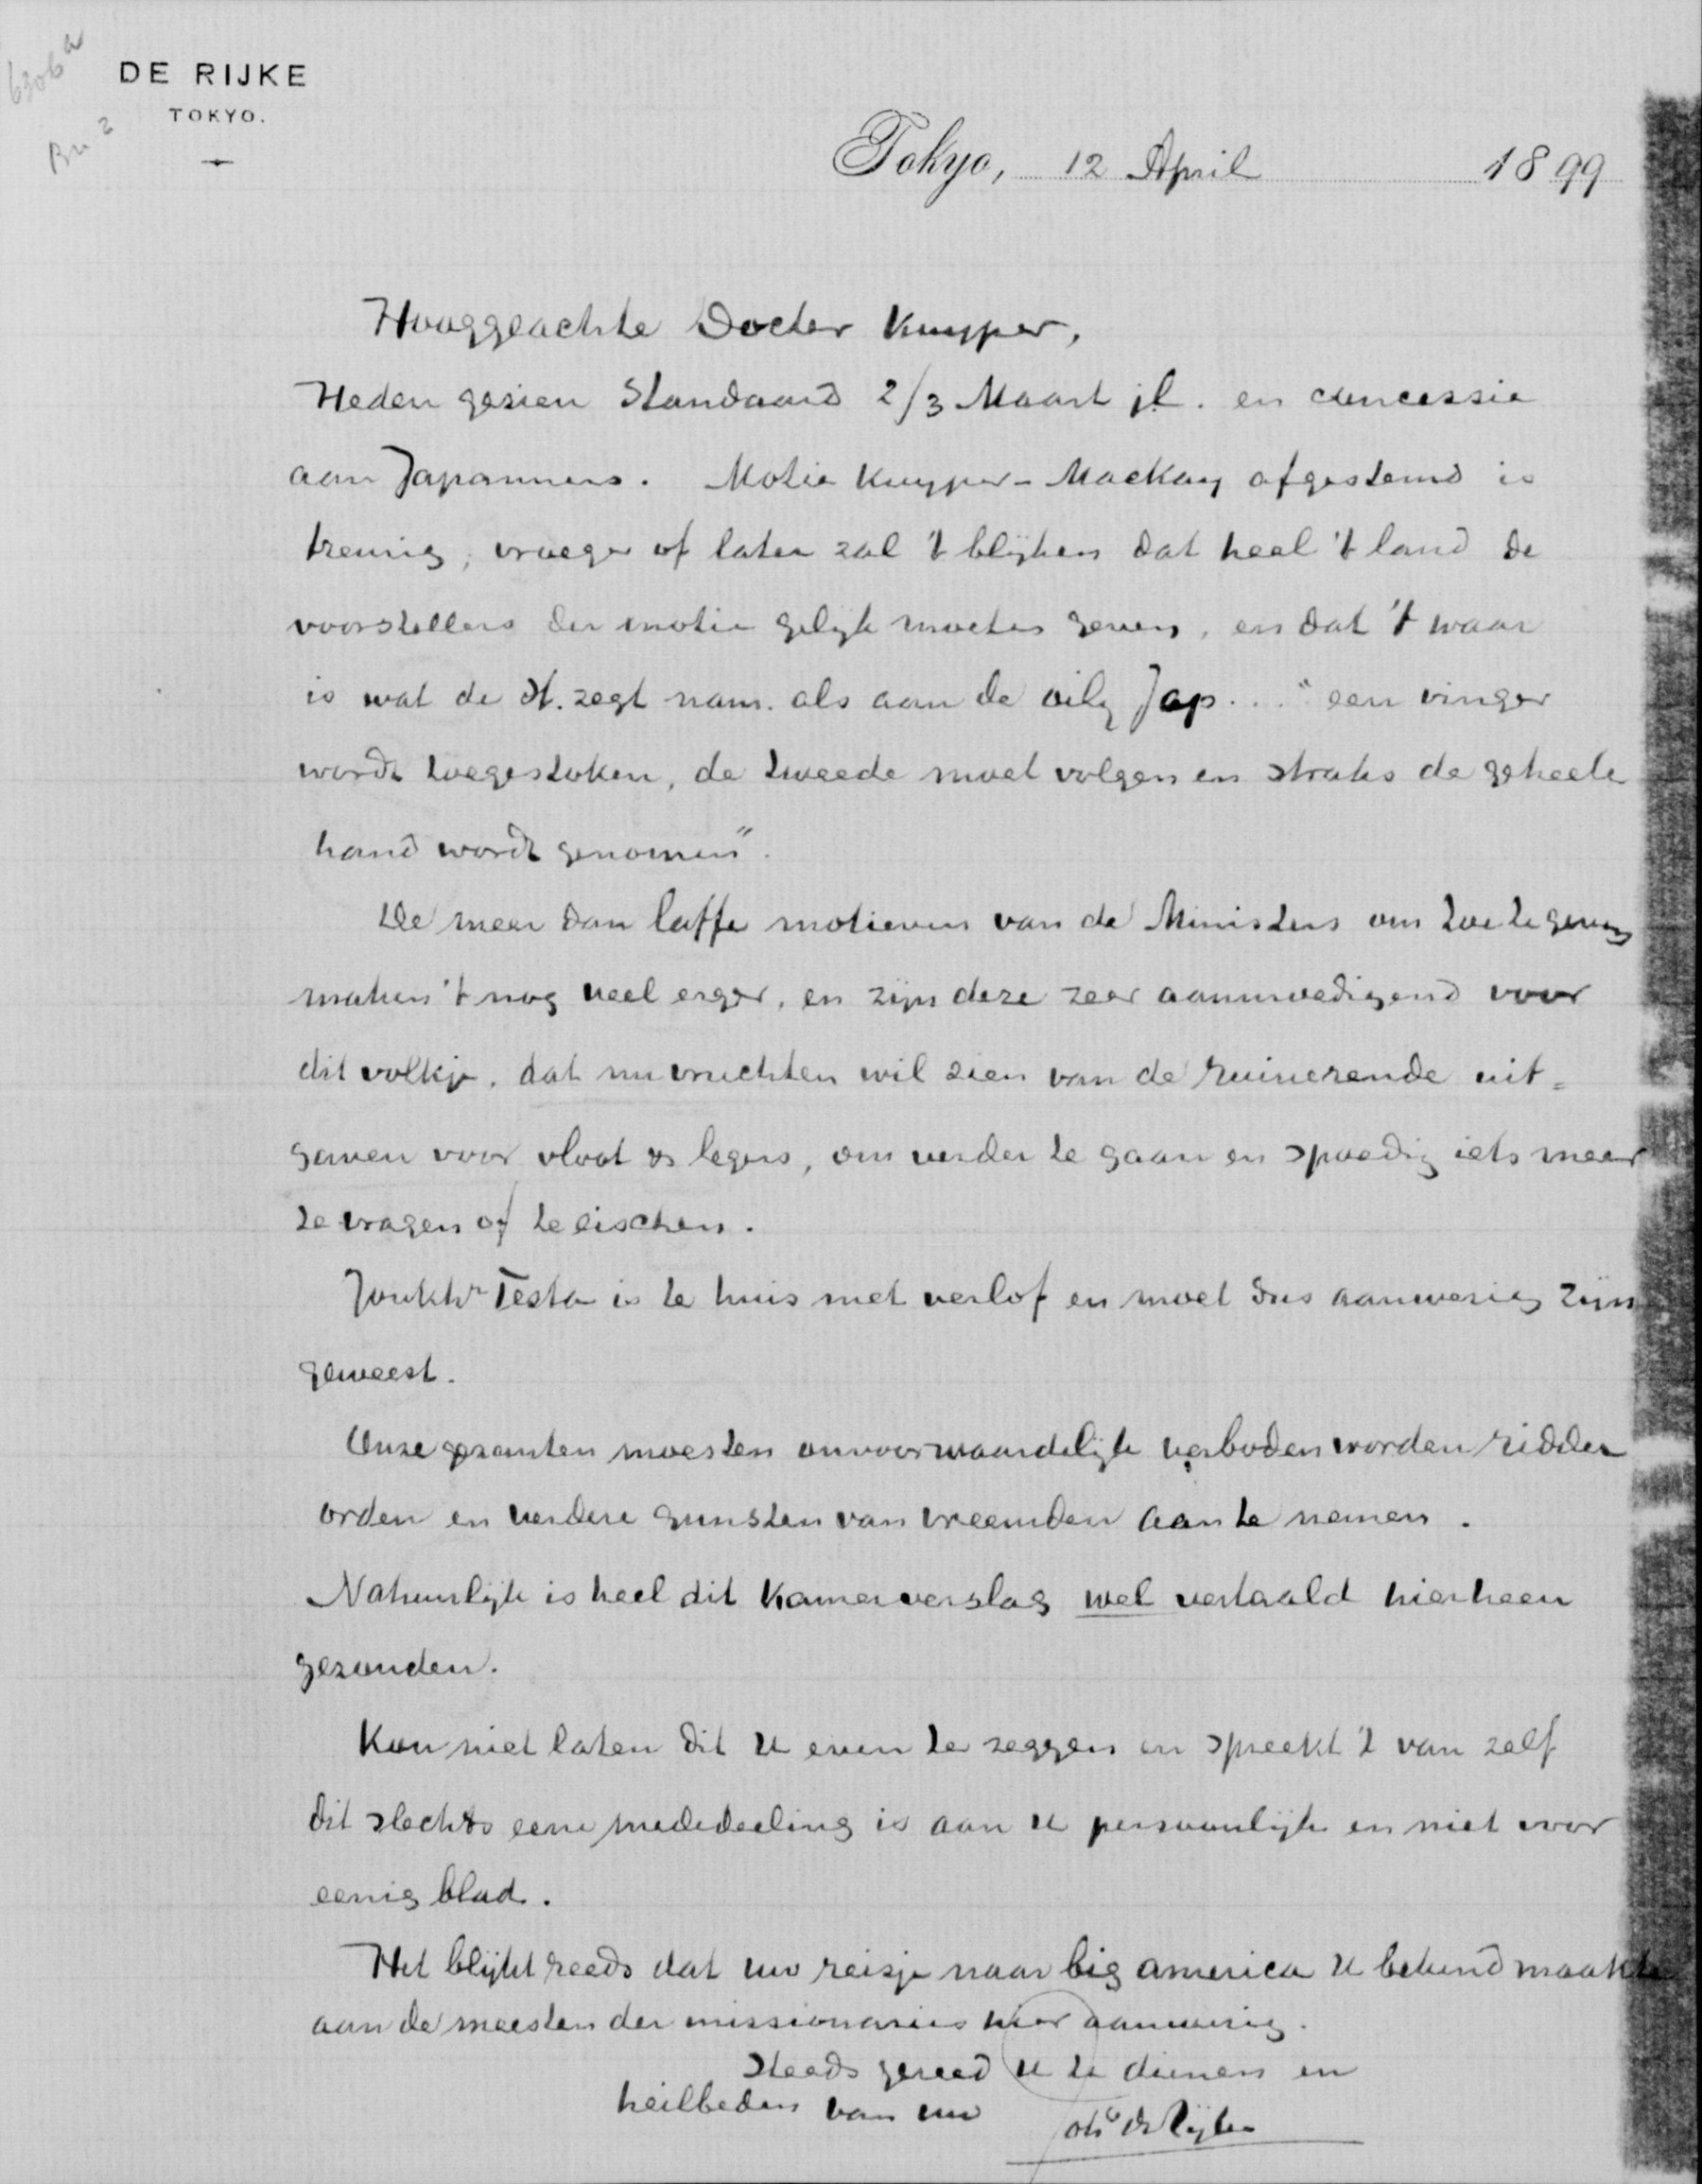 6306a
Bu 2
DE RIJKE
TOKYO.
Tokyo, 12 April 1899
Hooggeachte Docter Kuyper,
Heden gezien Standaard 2/3 Maart jl. en concessie
aan Japanners. Motie Kuyper-Mackay afgestemd is
treurig, vroeger of later zal 't blijken dat heel 't land de
voorstellers der motie gelijk moeten geven, en dat 't waar
is wat de St. zegt nam. als aan de oily Jap... "een vinger
wordt toegestoken, de tweede moet volgen en straks de geheele
hand wordt genomen".
De meer dan laffe motieven van de Ministers om toe te geven
maken 't nog veel erger, en zijn deze zeer aanmoedigend voor
dit volkje, dat nu vruchten wil zien van de ruinerende uit=
gaven voor vloot en legers, om verder te gaan en spoedig iets meer
te vragen of te eischen.
Jonkhr Testa is te huis met verlof en moet dus aanwezig zijn
geweest.
Onze gezanten moesten onvoorwaardelijk verboden worden ridder
orden en verdere gunsten van vreemden aan te nemen.
Natuurlijk is heel dit Kamerverslag wel vertaald hierheen
gezonden.
Kon niet laten dit U even te zeggen en spreekt 't van zelf
dit slechts eene mededeeling is aan U persoonlijk en niet voor
eenig blad.
Het blijkt reeds dat uw reisje naar big america U bekend maakte
aan de meesten der missionaries hier aanwezig.
Steeds gereed U te dienen en
heilbeden van uw
Johs de Rijke